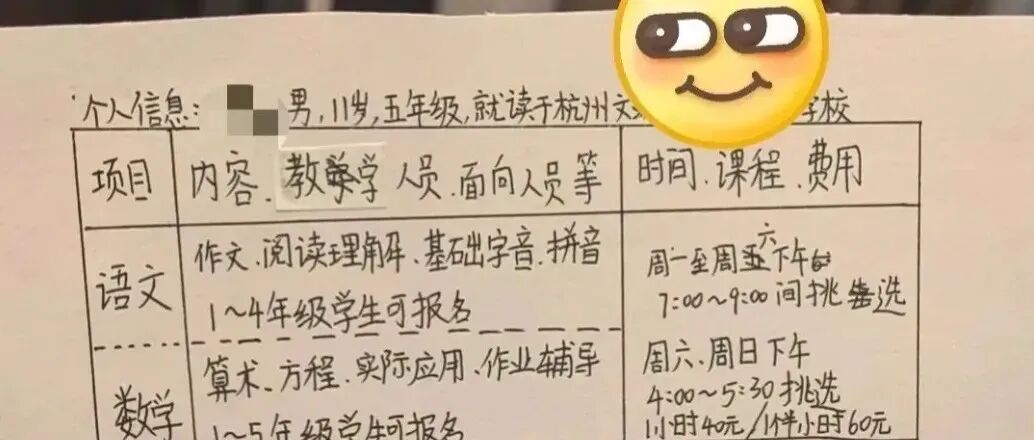 个人信息: 男,11岁,五年级,就读于杭州文 学校
项目
内容、教学人员、面向人员等
时间、课程、费用
语文
作文、阅读理解、基础字音、拼音
1~4年级学生可报名
周一至周六下午
7:00~9:00间挑选
数学
算术、方程、实际应用、作业辅导
1~5年级学生可报名
周六、周日下午
4:00~5:30挑选
1小时40元/1个半小时60元